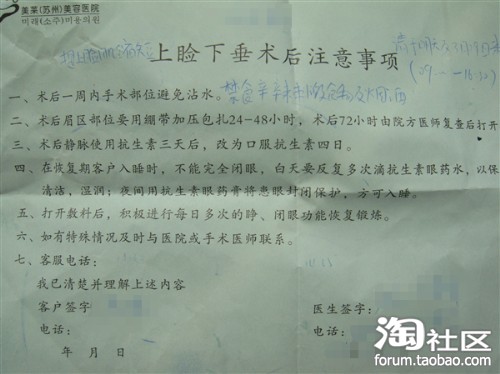 美莱(苏州)美容医院
미래(소주)미용의원
上睑下垂术后注意事项
一、术后一周内手术部位避免沾水。
禁食辛辣
二、术后眉区部位要用绷带加压包扎24-48小时，术后72小时由院方医师复查后打开
三、术后静脉使用抗生素三天后，改为口服抗生素四日。
四、在恢复期客户入睡时，不能完全闭眼，白天要反复多次滴抗生素眼药水，以保
清洁，湿润；夜间用抗生素眼药膏将患眼封闭保护，方可入睡。
五、打开敷料后，积极进行每日多次的睁、闭眼功能恢复锻炼。
六、如有特殊情况及时与医院或手术医师联系。
七、客服电话：
我已清楚并理解上述内容
客户签字
医生签字：
电话：
电话：
年 月 日
淘社区
forum.taobao.com